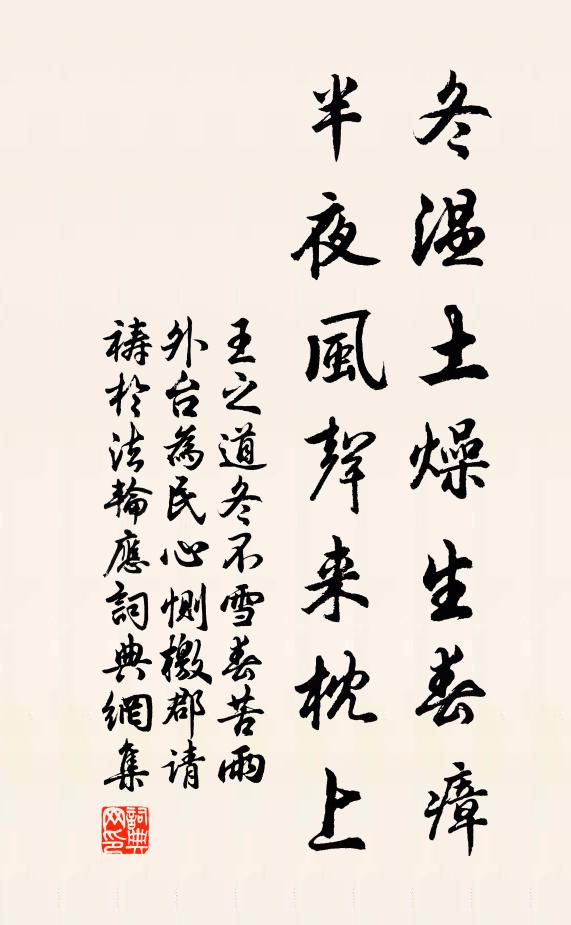 冬温土燥生春瘴
半夜風聲来枕上
王之道冬不雪春苦雨
外台為民心惻檄郡请
祷於法輪應詞典網集
詞典网印